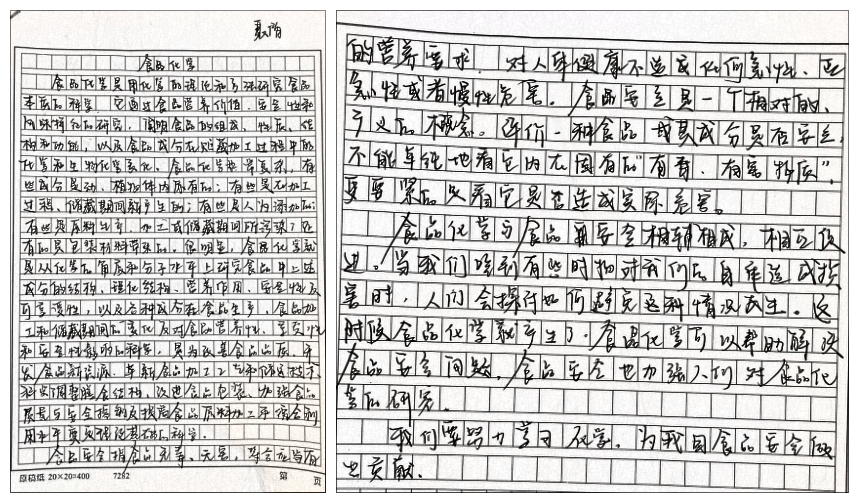 食品化学
食品化学是用化学的理论和方法研究食品
本质的科学，它通过食品营养价值、安全性和
风味特征的研究，阐明食品的组成、性质、结
构和功能，以及食品成分在贮藏加工过程中的
化学和生物化学变化。食品化学成分复杂，有
些成分是动、植物体内原有的；有些是在加工
过程、储藏期间新产生的；有些是人为添加的；
有些是原料生产、加工或储藏期间所污染的；还
有的是包装材料带来的。很明显，食品化学就
是从化学的角度和分子水平上研究食品中上述
成分的结构、理化性质、营养作用、安全性及
可享受性，以及各种成分在食品生产、食品加
工和储藏期间的变化及对食品营养性、享受性
和安全性影响的科学，是为改善食品品质、开
发食品新资源、革新食品加工工艺和储运技术、
科学调整膳食结构、改进食品包装、加强食品
质量与安全控制及提高食品原料加工和综合利
用水平奠定理论基础的科学。
食品安全指食品无毒、无害，符合应当有
的营养要求，对人体健康不造成任何急性、亚
急性或者慢性危害。食品安全是一个相对的、
广义的概念。评价一种食品或其成分是否安全，
不能单纯地看它内在固有的“有毒、有害物质”，
更要紧的是看它是否造成实际危害。
食品化学与食品安全相辅相成，相互促
进。当我们吃到有些食物对我们的身体造成损
害时，人们会探讨如何避免这种情况发生。这
时候食品化学就产生了。食品化学可以帮助解决
食品安全问题，食品安全也加强人们对食品化
学的研究。
我们要努力学习化学，为我国食品安全做
出贡献。
原稿纸 20×20=400 7282 第 页